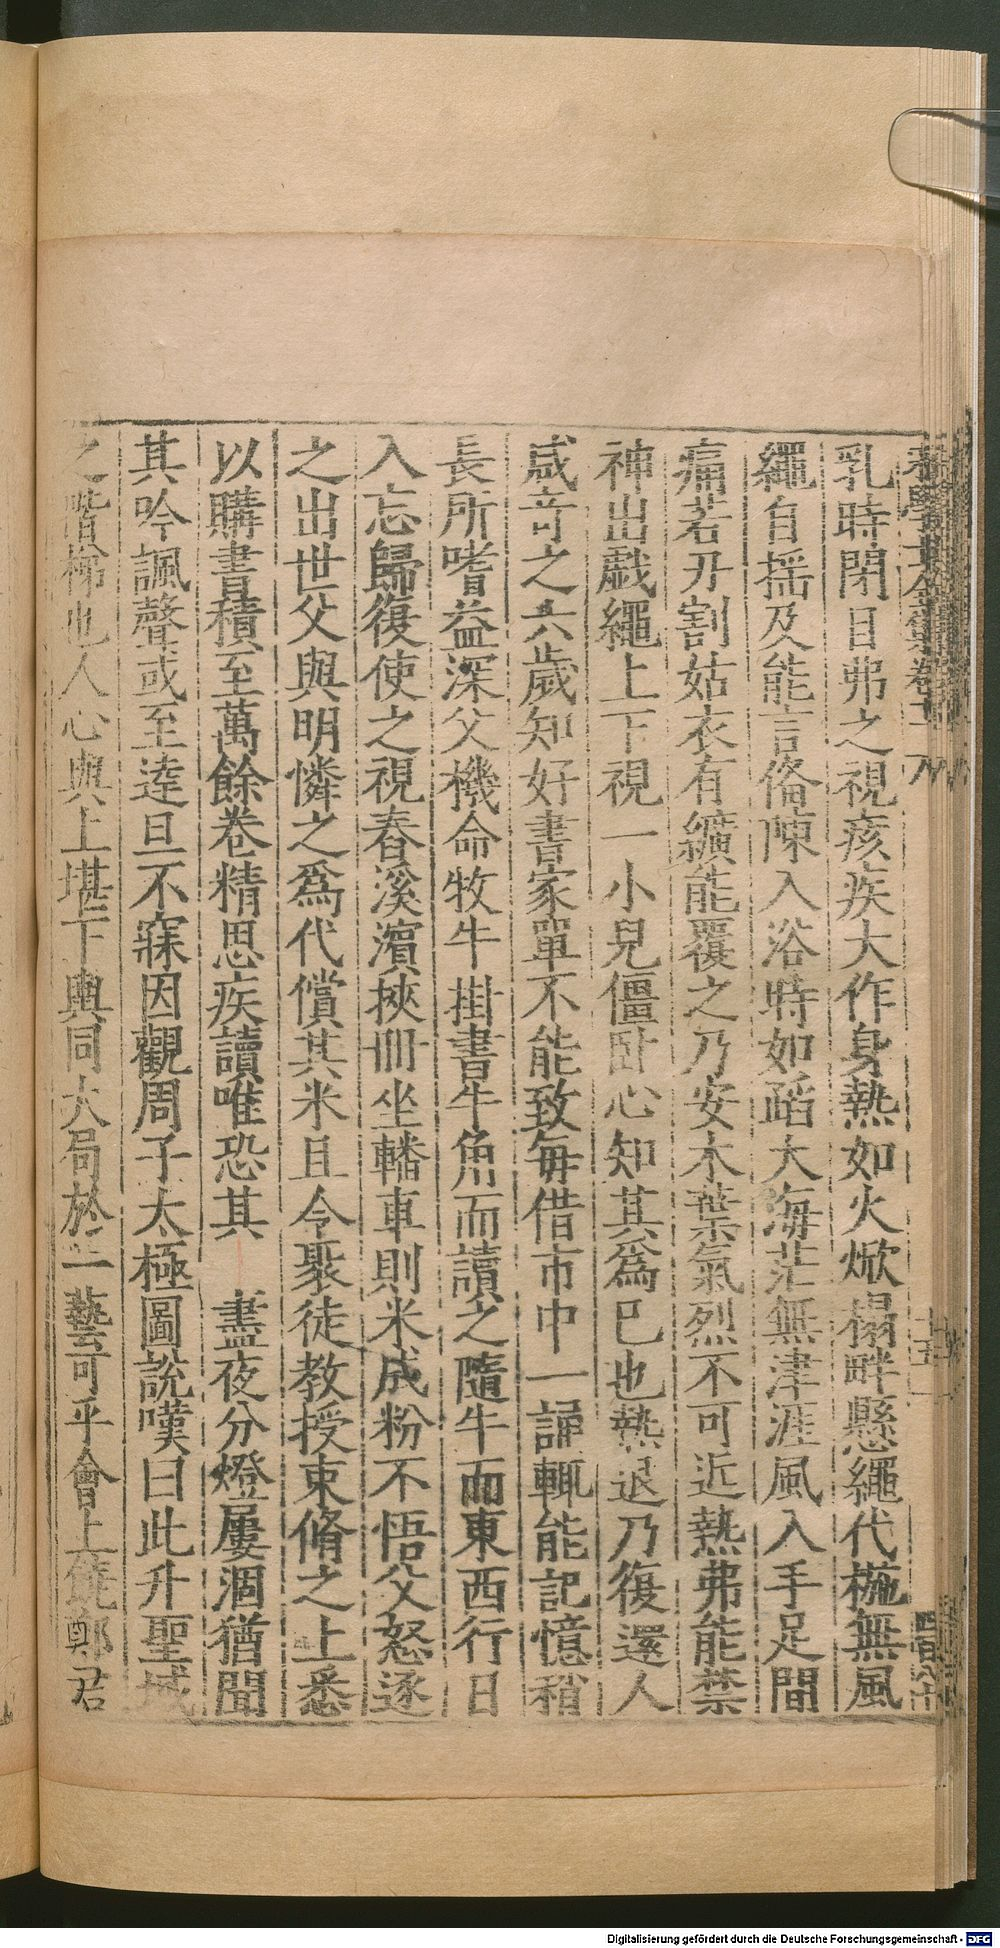 乳時閉目弗之視痎疾大作身熱如火焮榻畔懸繩代椸無風
繩自揺及能言俻陳入浴時如蹈大海茫無津涯風入手足間
痛若刅割姑衣有纊能覆之乃安木葉氣烈不可近熱弗能禁
神出戯繩上下視一小兒僵卧心知其爲巳也熱退乃復還人
咸竒之六歲知好書家單不能致毎借市中一誦輒能記憶稍
長所嗜益深父機命牧牛掛書牛角而讀之隨牛而東西行日
入忘歸復使之視舂溪濵挾冊坐轓車則米成粉不悟父怒逐
之出世父與明憐之爲代償其米且令聚徒教授束脩之上悉
以購書積至萬餘卷精思疾讀唯恐其 盡夜分燈屢涸猶聞
其吟諷聲或至逹旦不寐因觀周子太極圖説嘆曰此升聖域
之階梯也人心與上堪下輿同大局於一藝可乎會上饒鄭君
Digitalisierung gefördert durch die Deutsche Forschungsgemeinschaft - DFG